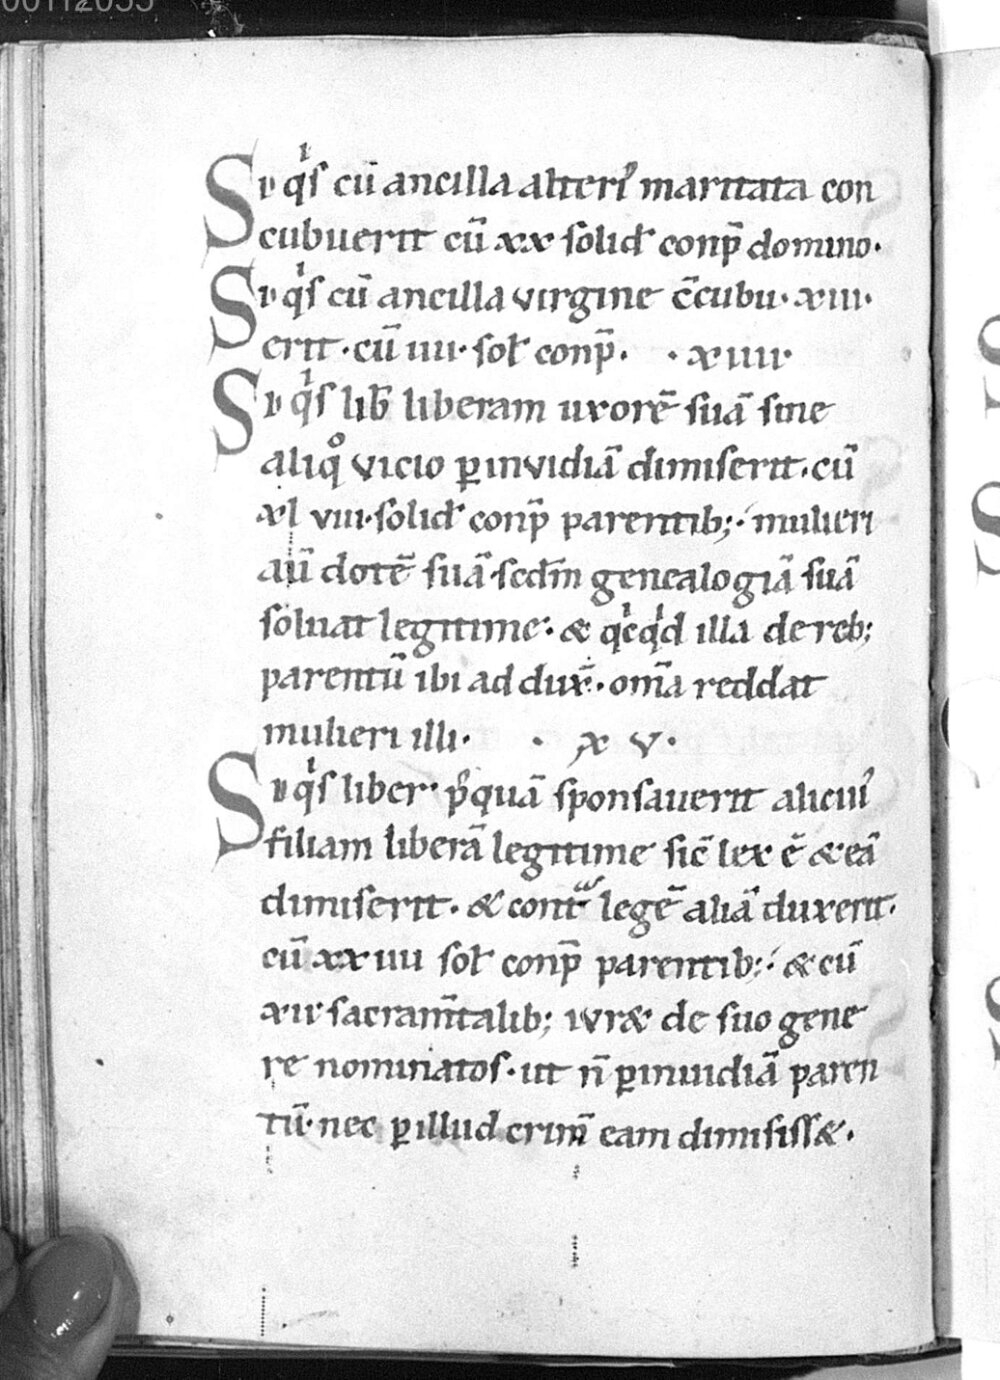 00112055
Si qͥs cū ancilla alteriꝰ maritata con
cubuerit cū xx solid conp̄ domino·
Si qͥs cū ancilla virgine c̄cubu· xiii·
erit· cū iiii· sol conp̄· · xiiii·
Si qͥs lib̄ liberam uxorē suā sine
aliqͦ vicio ꝑ invidiā dimiserit· cū
xl viii· solid conp̄ parentib; · mulieri
aū dotē suā· secdm̄ genealogiā suā
soluat legitime· & qͥcqͥd illa de reb;
parentū ibi ad dux̄· om̄a reddat
mulieri illi· · x v·
Si qͥs liber· pͦquā sponsauerit alicuiꝰ
filiam liberā legitime sic̄ lex ē & eā
dimiserit· & contͣ legē aliā duxerit·
cū xx iiii sol conp̄ parentib; · & cū
xii sacram̄talib; iur& de suo gene
re nominatos· ut n̄ ꝑ inuidiā paren
tū· nec ꝑ illud crim̄ eam dimisiss&·